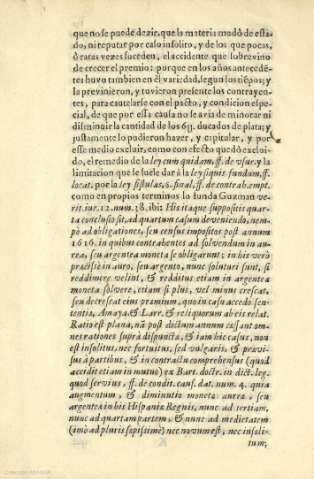 que no se puede dezir, que la materia mudò de esta-
do, ni reputar por caso insolito, y de los que pocas,
ò raras vezes suceden, el accidente que sobrevino
de crecer el premio: porque en los años antecedē-
tes huvo tambien en èl variedad, segun los tiēpos; y
la previnieron, y tuvieron presente los contrayen-
tes, para cautelarse con el pacto, y condicion espe-
cial, de que por esta causa no se avia de minorar ni
disminuir la cantidad de los 6y. ducados de plata; y
justamente lo pudieron hazer, y capitular, y por
esse medio excluir, como con efecto quedò exclui-
do, el remedio de la ley cum quidam, ff. de usur. y la
limitacion que se suele dar à la ley siquis fundum, ff.
locat. por la ley fistulas, §. final, ff. de contrab. empt.
como en propios terminos lo funda Guzman ve-
rit. iur. 12. num. 38. ibi: His itaque suppositis quar-
ta conclusio sit, ad quartum casum deveniendo, nem-
pè ad obligationes, seu census impositos post annum
1616. in quibus contrahentes ad solvendum in au-
rea, seu argentea moneta se obligarunt; in his verò
præcissè in auro, seu argento, nunc solituri sunt, si
reddimere velint, & redditus etiam in argentea
moneta solvere, etiam si plus, vel minus crescat,
seu decrescat eius præmium, quo in casu accedo sen-
tentiæ, Amaya, & Larr. & reliquorum ab eis relat.
Ratio est plana, nā post dictum annum cessant om-
nes rationes suprà dispunctæ, & iam hic casus, non
est insolitus, nec fortuitus, sed vulgaris, & prævi-
sus à partibus, & in contractu comprehensus (quod
accedit etiam in mutuo) ex Bart. doctr. in dict. leg.
quod servius, ff. de condit. caus. dat. num. 4. quia
augmentum, & diminutio monetæ aureæ, seu
argenteæ in his Hispaniæ Regnis, nunc ad tertiam,
nunc ad quartam partem, & nunc ad medietatem
(imò ad pluris sæpissimè) nec novum est, nec insoli-
tum,